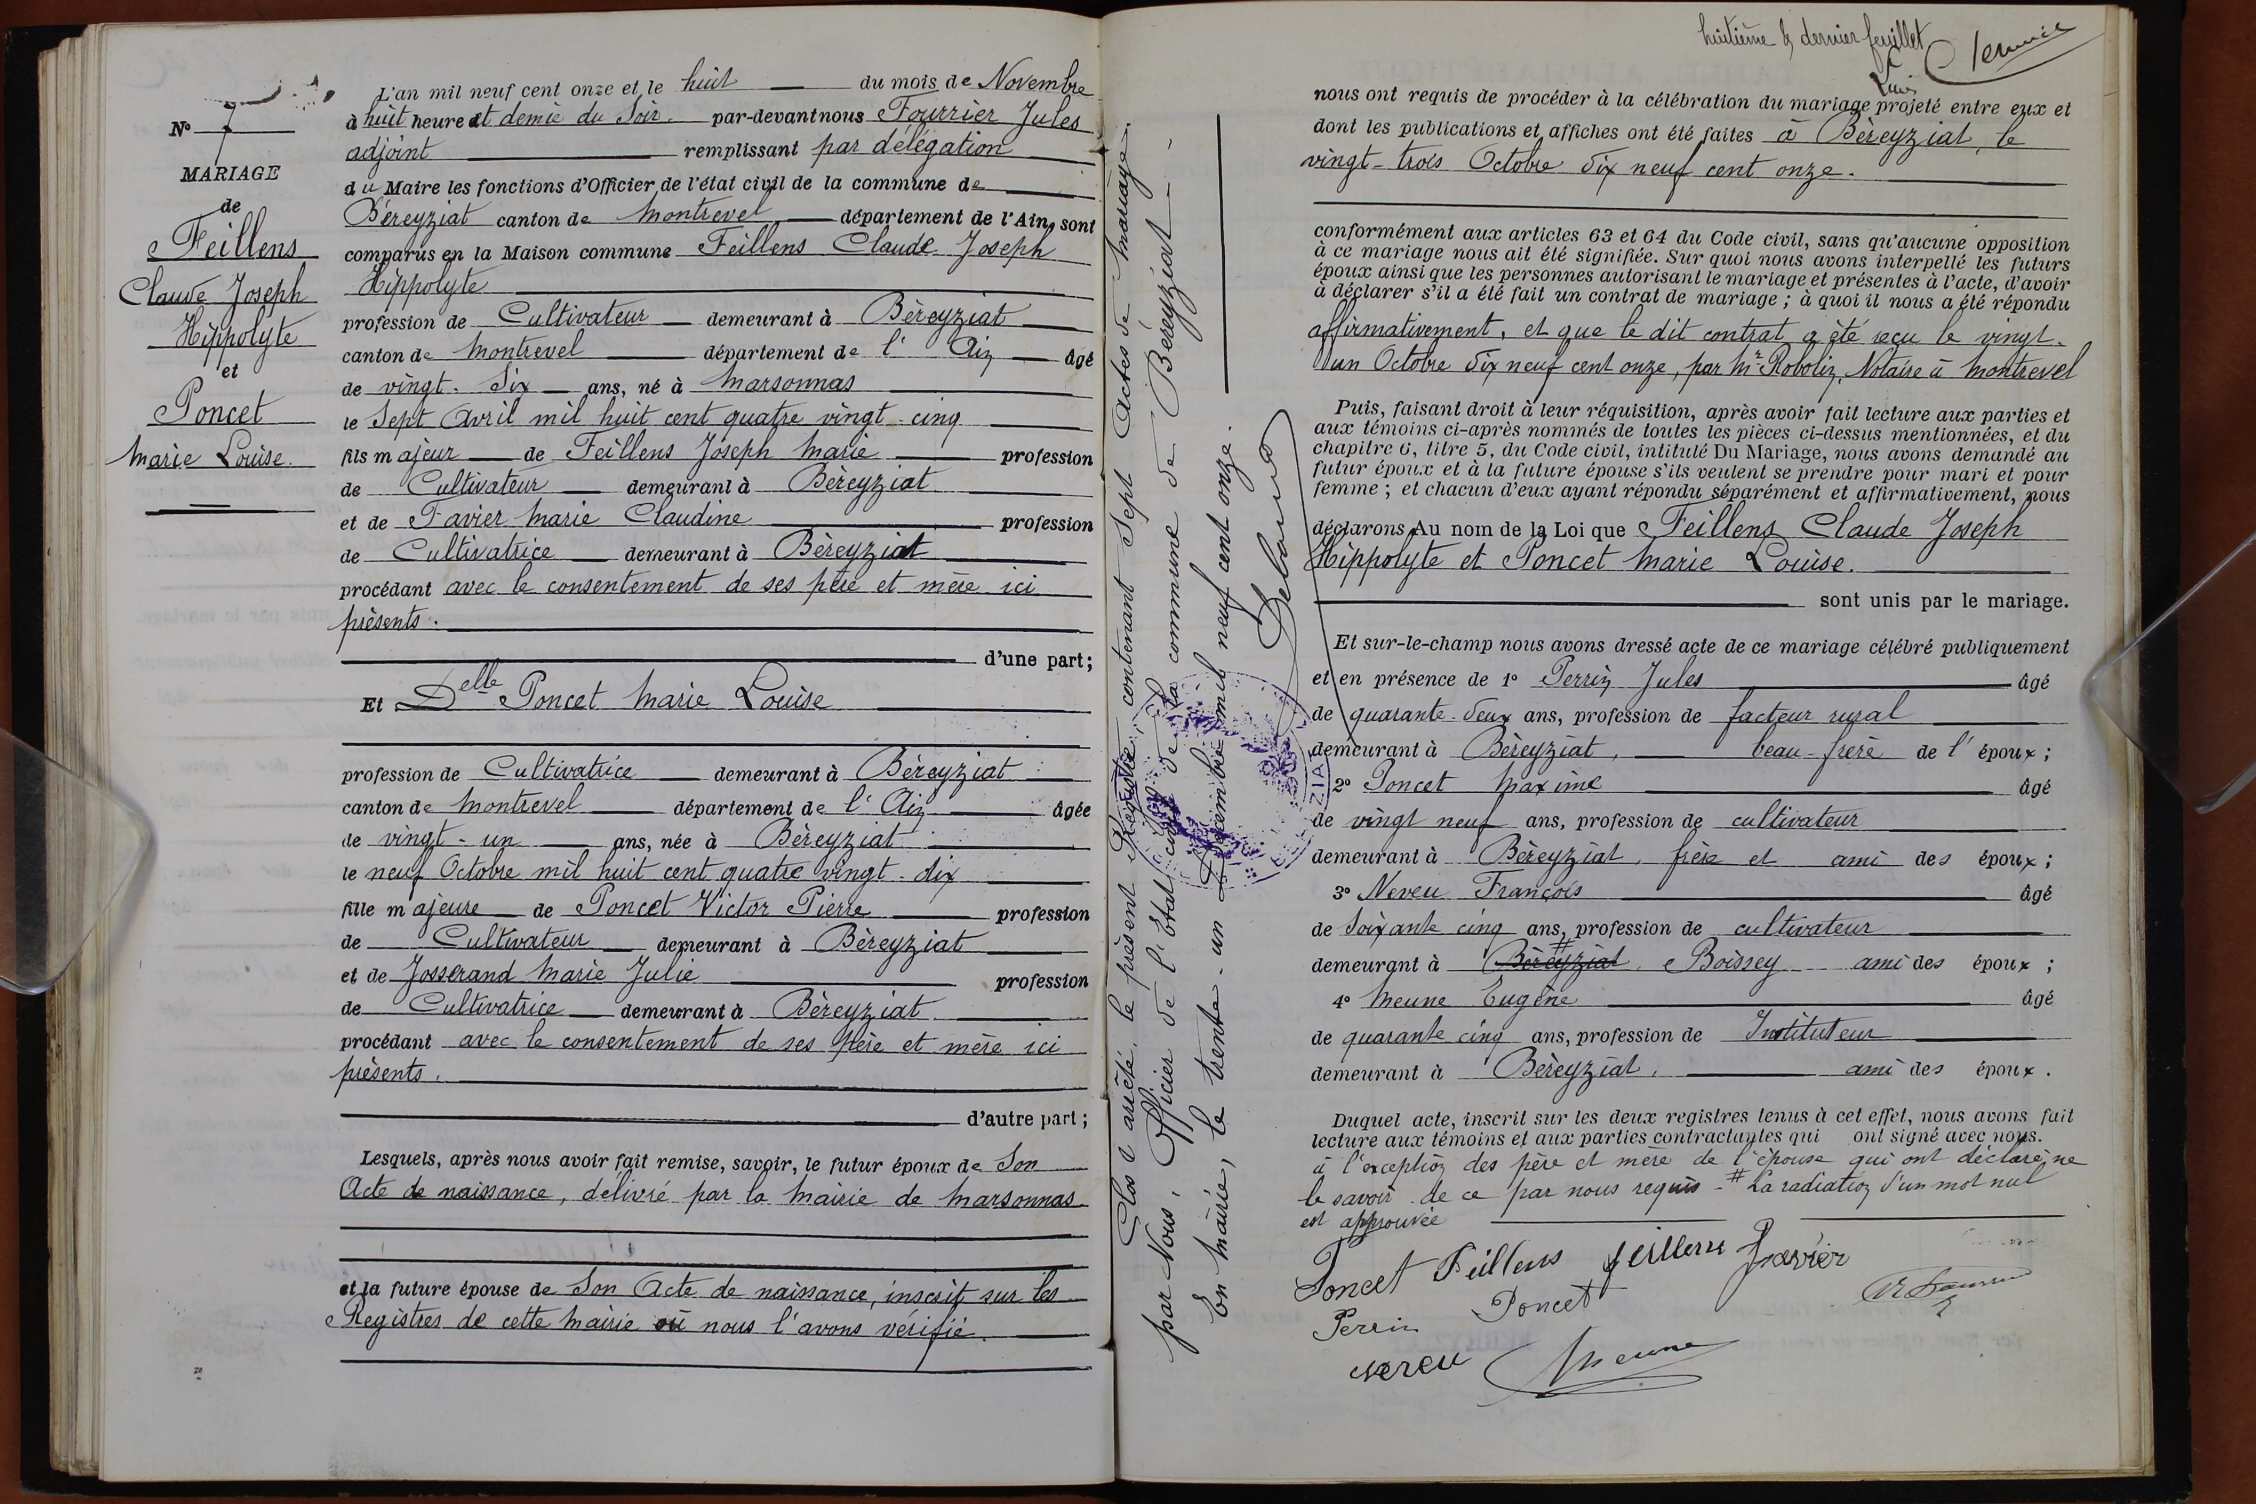 N° 7
MARIAGE
de
Feillens
Claude Joseph
Hippolyte
et
Poncet
Marie Louise.
L'an mil neuf cent onze et le huit du mois de Novembre
à huit heure et demie du soir. par-devant nous Fourrier Jules
adjoint remplissant par délégation
du Maire les fonctions d'Officier de l'état civil de la commune de
Béreyziat canton de Montrevel département de l'Ain, sont
comparus en la Maison commune Feillens Claude Joseph
Hippolyte
profession de Cultivateur demeurant à Béreyziat
canton de Montrevel département de l' Ain âgé
de vingt-six ans, né à Marsonnas
le sept Avril mil huit cent quatre vingt-cinq
fils majeur de Feillens Joseph Marie profession
de Cultivateur demeurant à Béreyziat
et de Favier Marie Claudine profession
de Cultivatrice demeurant à Béreyziat
procédant avec le consentement de ses père et mère ici
présents.
d'une part;
Et Delle Poncet Marie Louise
profession de Cultivatrice demeurant à Béreyziat
canton de Montrevel département de l'Ain âgée
de vingt-un ans, née à Béreyziat
le neuf Octobre mil huit cent quatre vingt-dix
fille majeure de Poncet Victor Pierre profession
de Cultivateur demeurant à Béreyziat
et de Josserand Marie Julie profession
de Cultivatrice demeurant à Béreyziat
procédant avec le consentement de ses père et mère ici
présents.
d'autre part;
Lesquels, après nous avoir fait remise, savoir, le futur époux de son
Acte de naissance, délivré par la Mairie de Marsonnas
et la future épouse de son Acte de naissance, inscrit sur les
Registres de cette Mairie où nous l'avons vérifié.
Clos & arrêté, le présent Registre, contenant sept Actes de Mariage.
par Nous, Officier de l'Etat civil de la commune de Béreyziat
En Mairie, le trente-un Décembre mil neuf cent onze.
ZIAT
huitième & dernier feuillet
nous ont requis de procéder à la célébration du mariage projeté entre eux et
dont les publications et affiches ont été faites à Béreyziat, le
vingt-trois Octobre dix neuf cent onze.
conformément aux articles 63 et 64 du Code civil, sans qu'aucune opposition
à ce mariage nous ait été signifiée. Sur quoi nous avons interpellé les futurs
époux ainsi que les personnes autorisant le mariage et présentes à l'acte, d'avoir
à déclarer s'il a été fait un contrat de mariage; à quoi il nous a été répondu
affirmativement, et que le dit contrat a été reçu le vingt-
un Octobre dix neuf cent onze, par Mr Robolin, Notaire à Montrevel
Puis, faisant droit à leur réquisition, après avoir fait lecture aux parties et
aux témoins ci-après nommés de toutes les pièces ci-dessus mentionnées, et du
chapitre 6, titre 5, du Code civil, intitulé Du Mariage, nous avons demandé au
futur époux et à la future épouse s'ils veulent se prendre pour mari et pour
femme; et chacun d'eux ayant répondu séparément et affirmativement, nous
déclarons Au nom de la Loi que Feillens Claude Joseph
Hippolyte et Poncet Marie Louise.
sont unis par le mariage.
Et sur-le-champ nous avons dressé acte de ce mariage célébré publiquement
et en présence de 1° Perrin Jules âgé
de quarante-deux ans, profession de facteur rural
demeurant à Béreyziat, beau-frère de l'époux;
2° Poncet Maxime âgé
de vingt neuf ans, profession de cultivateur
demeurant à Béreyziat, frère et ami des époux;
3° Neveu François âgé
de soixante cinq ans, profession de cultivateur
demeurant à # Béreyziat. Boissey ami des époux;
4° Meune Eugène âgé
de quarante cinq ans, profession de Instituteur
demeurant à Béreyziat. ami des époux.
Duquel acte, inscrit sur les deux registres tenus à cet effet, nous avons fait
lecture aux témoins et aux parties contractantes qui ont signé avec nous.
à l'exception des père et mère de l'épouse qui ont déclaré ne
le savoir de ce par nous requis. # La radiation d'un mot nul
est approuvée
Poncet Feillens Feillens Favier
Perrin Poncet
Neveu Meune